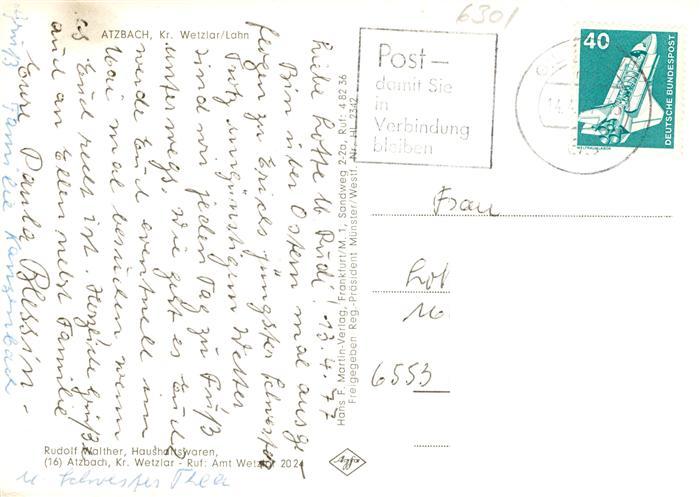 6301
ATZBACH, Kr. Wetzlar/Lahn
Post—
damit Sie
in
Verbindung
bleiben
40
DEUTSCHE BUNDESPOST
WELTRAUMLABOR
Liebe Lotte u Rudi! 13.4.77
Bin über Ostern mal ausge-
flogen zu Erikas jüngster Schwester
Trotz ungünstigem Wetter
sind wir jeden Tag zu Fuß
unterwegs. Wie geht es Euch
werde Euch eventuell im
Mai mal besuchen wenn
es Euch recht ist. Herzliche Grüße
auch an Ellen nebst Familie
Eure Paula Blessin -
Gruß Familie
u. Schwester Thea
Hans F. Martin-Verlag, Frankfurt/M. 1, Sandweg 2-2a, Ruf: 4 82 36
Freigegeben Reg.-Präsident Münster/Westf. Nr. HL 2342
Frau
6553
Rudolf Walther, Haushaltswaren,
(16) Atzbach, Kr. Wetzlar - Ruf: Amt Wetzlar 2024
Agfa